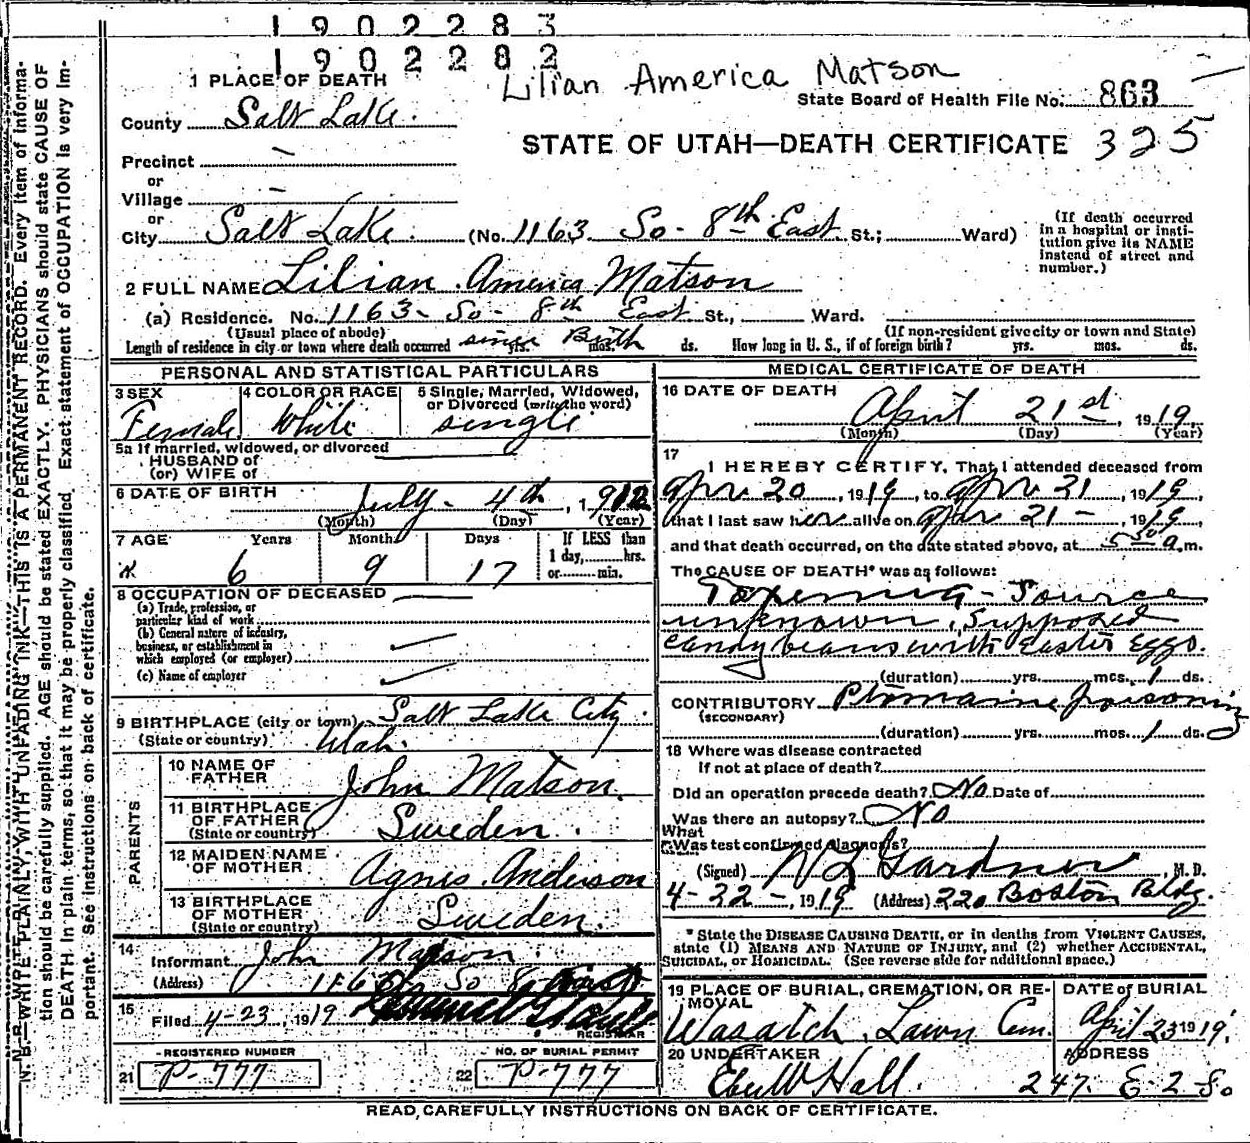 1902283
1902282
Lilian America Matson
1 PLACE OF DEATH
State Board of Health File No. 863
County Salt Lake.
STATE OF UTAH—DEATH CERTIFICATE 325
Precinct —
or
Village —
or
City Salt Lake. (No. 1163 So. 8th East St.; Ward)
(If death occurred in a hospital or institution give its NAME instead of street and number.)
2 FULL NAME Lilian America Matson
(a) Residence. No. 1163 So 8th East St., Ward.
(Usual place of abode) (If non-resident give city or town and State)
Length of residence in city or town where death occurred since Birth yrs. mos. ds. How long in U. S., if of foreign birth? yrs. mos. ds.
PERSONAL AND STATISTICAL PARTICULARS
3 SEX Female
4 COLOR OR RACE White
5 Single, Married, Widowed, or Divorced (write the word) single
5a If married, widowed, or divorced
HUSBAND of
(or) WIFE of
6 DATE OF BIRTH July 4th, 1912
(Month) (Day) (Year)
7 AGE Years Months Days If LESS than 1 day, hrs. or min.
6 9 17
8 OCCUPATION OF DECEASED
(a) Trade, profession, or particular kind of work
(b) General nature of industry, business, or establishment in which employed (or employer)
(c) Name of employer
9 BIRTHPLACE (city or town) Salt Lake City
(State or country) Utah.
PARENTS
10 NAME OF FATHER John Matson.
11 BIRTHPLACE OF FATHER (State or country) Sweden.
12 MAIDEN NAME OF MOTHER Agnes Anderson
13 BIRTHPLACE OF MOTHER (State or country) Sweden.
14 Informant John Matson.
(Address) 1163 So 8 East
15 Filed 4-23, 1919
REGISTRAR
REGISTERED NUMBER
21 P-777
NO. OF BURIAL PERMIT
22 P-777
MEDICAL CERTIFICATE OF DEATH
16 DATE OF DEATH April 21st, 1919
(Month) (Day) (Year)
17 I HEREBY CERTIFY, That I attended deceased from
Apr 20, 1919, to Apr 21, 1919,
that I last saw her alive on Apr 21 -, 1919,
and that death occurred, on the date stated above, at 5 30 a m.
The CAUSE OF DEATH* was as follows:
Toxemia - Source
unknown, Supposed
candy beans with Easter Eggs.
(duration) yrs. mos. 1 ds.
CONTRIBUTORY Ptomaine poisoning
(SECONDARY)
(duration) yrs. mos. 1 ds.
18 Where was disease contracted
If not at place of death?
Did an operation precede death? No Date of
Was there an autopsy? No
What test confirmed diagnosis?
(Signed) Gardner, M.D.
4-22-, 1919 (Address) 220 Boston Bldg.
* State the DISEASE CAUSING DEATH, or in deaths from VIOLENT CAUSES,
state (1) MEANS AND NATURE OF INJURY, and (2) whether ACCIDENTAL,
SUICIDAL, or HOMICIDAL. (See reverse side for additional space.)
19 PLACE OF BURIAL, CREMATION, OR REMOVAL Wasatch Lawn Cem.
DATE of BURIAL April 23 1919.
20 UNDERTAKER Eber W Hall.
ADDRESS 247 E-2-So
READ CAREFULLY INSTRUCTIONS ON BACK OF CERTIFICATE.
N. B.—WRITE PLAINLY, WITH UNFADING INK—THIS IS A PERMANENT RECORD. Every item of informa-
tion should be carefully supplied. AGE should be stated EXACTLY. PHYSICIANS should state CAUSE OF
DEATH in plain terms, so that it may be properly classified. Exact statement of OCCUPATION is very im-
portant. See instructions on back of certificate.